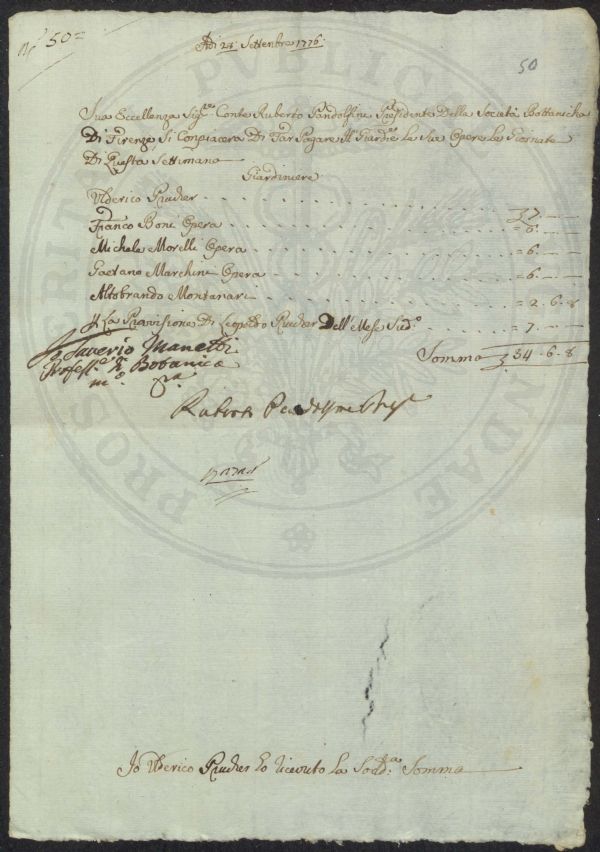 N° 50=
Adi 24 Settembre 1776:
50
Sua Eccellenza Sig:re Conte Ruberto Pandolfini Presidente Della Società Bottanicha
Di Firenze Si Conpiacera Di Far Pagare Il Giard:re le Sue Opere le Giornate
Di Questa Settimana
Giardiniere
Ulderico Prucher
Franco Boni Opera = 6. — —
Michele Morelli Opera = 6. — —
Gaetano Marchini Opera = 6. — —
Altobrando Montanari = 2. 6. 8
La Provisione Di Leopoldo Prucher Dell'Mese Sud:o = 7. — —
Somma 34. 6. 8
Saverio Manetti
Profess:e Botanica
m:o
Io Ulderico Prucher ho ricevuto la Sodd:a Somma
PROSPERITATI PUBLICAE AUGENDAE